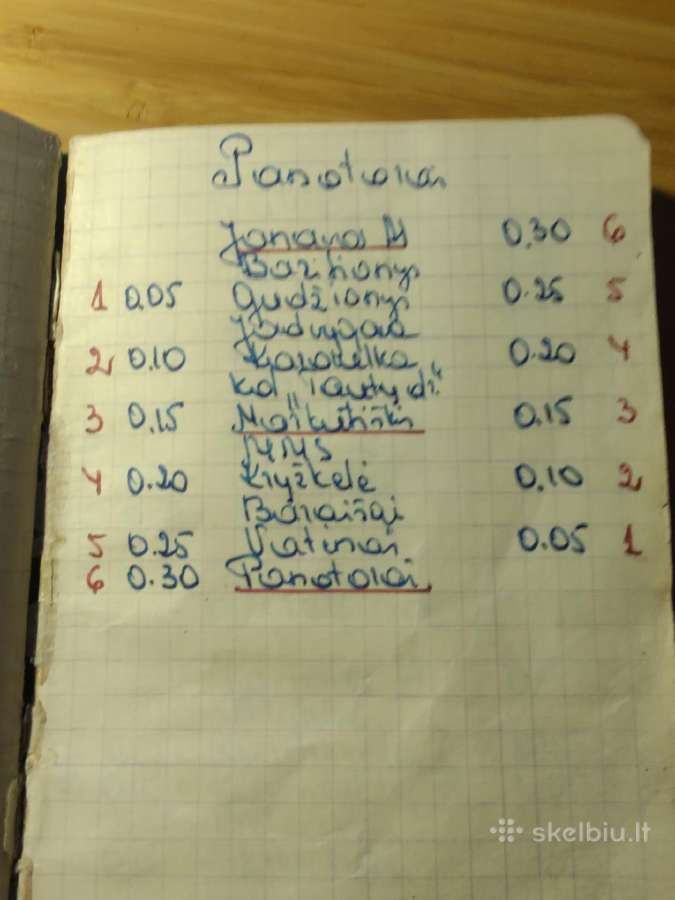 Panotokai
Jonava M 0.30 6
Bazilionys
1 0.05 Gudžionys 0.25 5
Jadvygava
2 0.10 0.20 4
Kol.
3 0.15 Maškutiškis 0.15 3
MMS
4 0.20 Kryžkelė 0.10 2
Baraišai
5 0.25 Vatinai 0.05 1
6 0.30 Panotokai
skelbiu.lt